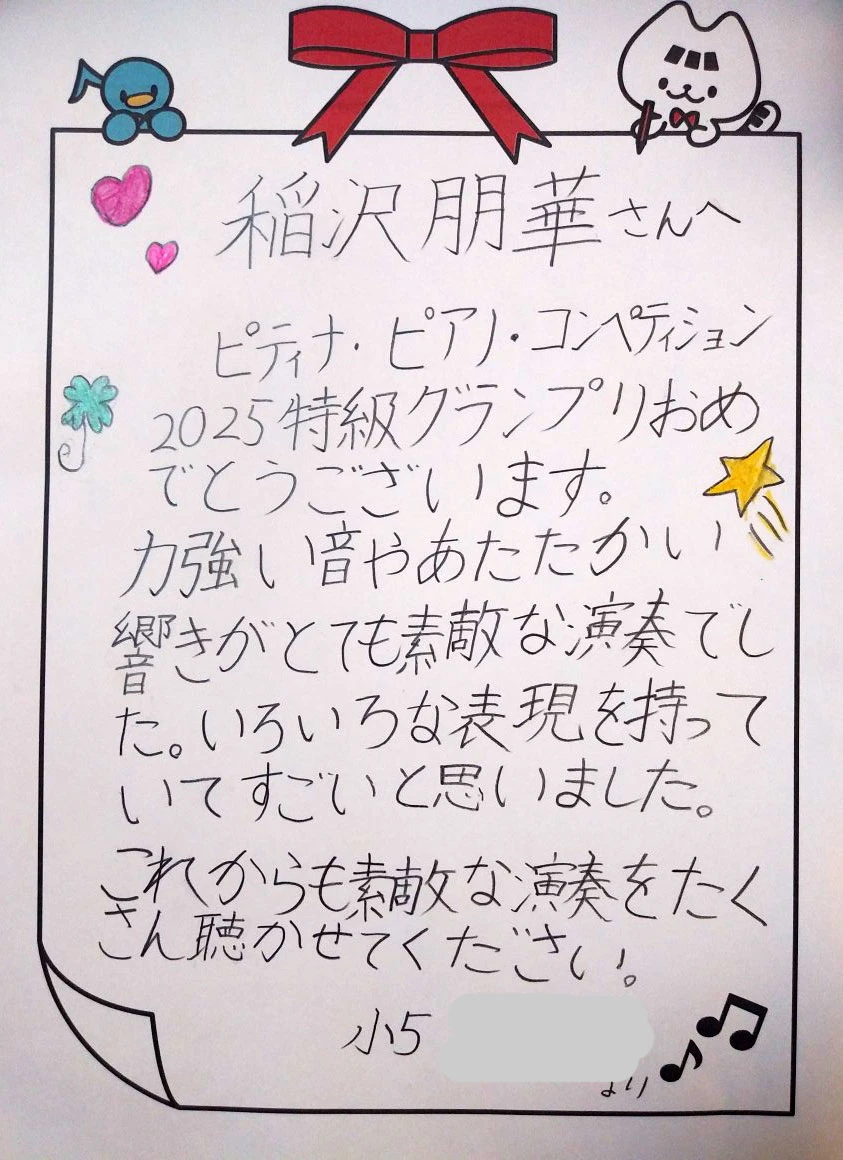 稲沢朋華さんへ
ピティナ・ピアノ・コンペティション
2025特級グランプリおめ
でとうございます。
力強い音やあたたかい
響きがとても素敵な演奏でし
た。いろいろな表現を持って
いてすごいと思いました。
これからも素敵な演奏をたく
さん聴かせてください。
小5
より